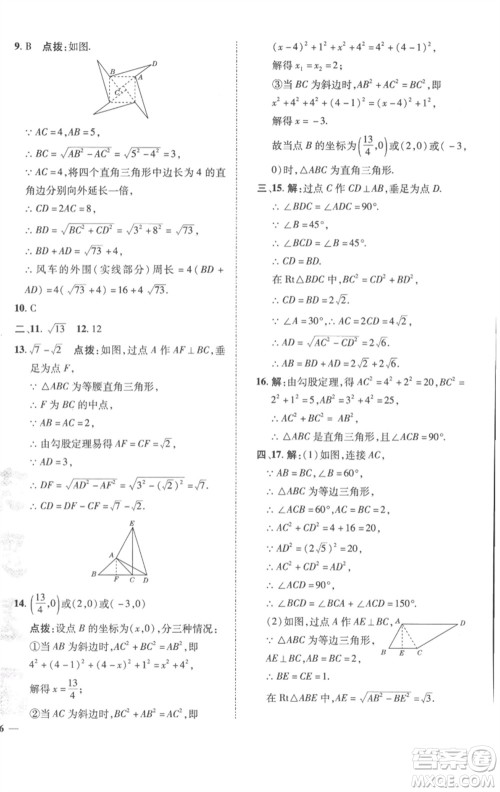 9. B 点拨:如图.
B
A
C
D
∵ AC=4,AB=5,
∴ BC=√(AB²−AC²)=√(5²−4²)=3.
∵ 将四个直角三角形中边长为 4 的直
角边分别向外延长一倍,
∴ CD=2AC=8,
∴ BD=√(BC²+CD²)=√(3²+8²)=√73,
∴ BD+AD=√73+4,
∴ 风车的外围(实线部分)周长为
(√73+4)×4=4√73+16.
10. C
二、11. √13 12. 12
13. √7−√2 点拨:如图,过点 A 作 AF⊥BC,垂
足为点 F,
∵ △ABC 为等腰直角三角形,
∴ F 为 BC 的中点,
∵ AC=2,
∴ 由勾股定理易得 AF=CF=√2.
∵ AD=3,
∴ DF=√(AD²−AF²)=√(3²−(√2)²)=√7,
∴ CD=DF−CF=√7−√2.
E
A
B F C D
14. (13/4,0)或(2,0)或(−3,0)
点拨:设点 B 的坐标为(x,0),分三种情况:
①当 AB 为斜边时,AC²+BC²=AB²,即
4²+(4−1)²+1²+x²=4²+(x−4)²,
解得 x=13/4;
②当 AC 为斜边时,BC²+AB²=AC²,即
(x−4)²+4²+1²+x²=4²+(4−1)²,
解得 x₁=x₂=2;
③当 BC 为斜边时,AB²+AC²=BC²,即
x²+1²=(x−4)²+4²+4²+(4−1)²,
解得 x=−3.
故当点 B 的坐标为(13/4,0)或(2,0)或(−3,
0)时,△ABC 为直角三角形.
三、15. 解:过点 C 作 CD⊥AB,垂足为点 D,
∴ ∠BDC=∠ADC=90°.
∵ ∠B=45°,
∴ ∠BCD=∠B=45°,
∴ CD=BD.
在 Rt△ADC 中,∠ADC=90°,
∵ ∠A=30°,AC=4√2,
∴ BD=CD=2√2.
∴ AD=√(AC²−CD²)=2√6.
∴ AB=AD+BD=2√6+2√2.
16. 解:由勾股定理,得 AC²=4²+2²=20,BC²=
2²+1²=5,AB²=3²+4²=25,
∴ AC²+BC²=AB²,
∴ △ABC 是直角三角形,∠ACB=90°.
四、17. 解:(1)如图,连接 AC,
∵ AB=BC=2,∠B=60°,
∴ △ABC 为等边三角形,
∴ ∠BCA=60°,AC=AB=2,
∴ AC²+CD²=4+16=20,
∵ AD²=(2√5)²=20,
∴ AC²+CD²=AD²,
∴ △ACD 为直角三角形,∠ACD=90°,
∴ ∠BCD=∠BCA+∠ACD=150°.
(2)如图,过点 A 作 AE⊥BC,
∵ △ABC 为等边三角形,
∴ BE=½BC=1,
在 Rt△ABE 中,AE=√(AB²−BE²)=√3,
A
D
B E C
6